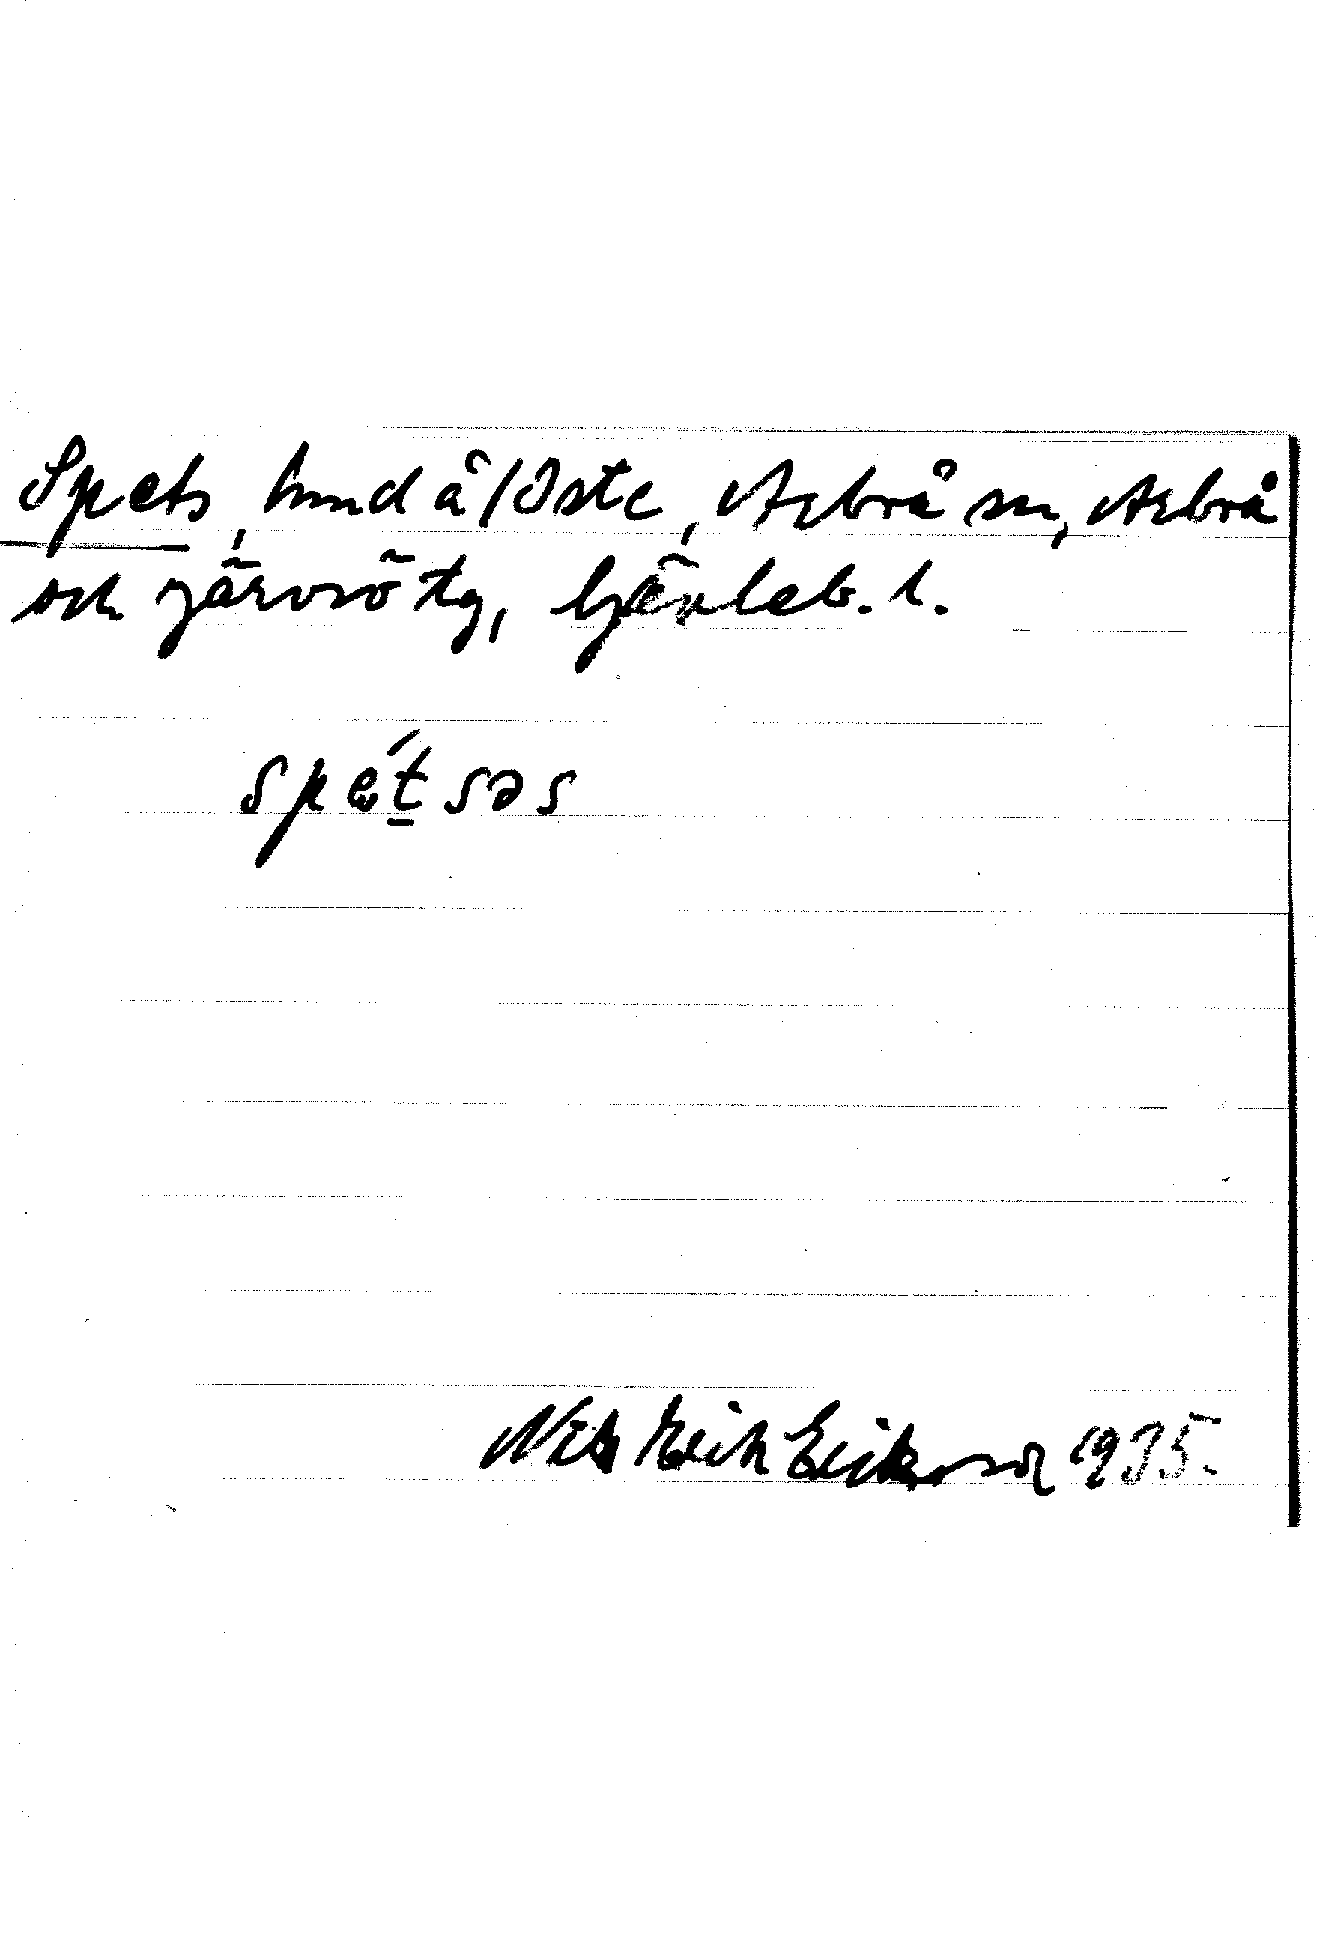 Spets, hund å /Öste, Arbrå sn, Arbrå
och Järvsö tg, Gävleb. l.
spe̜t́səs
Nils Erik Eriksson 1935.